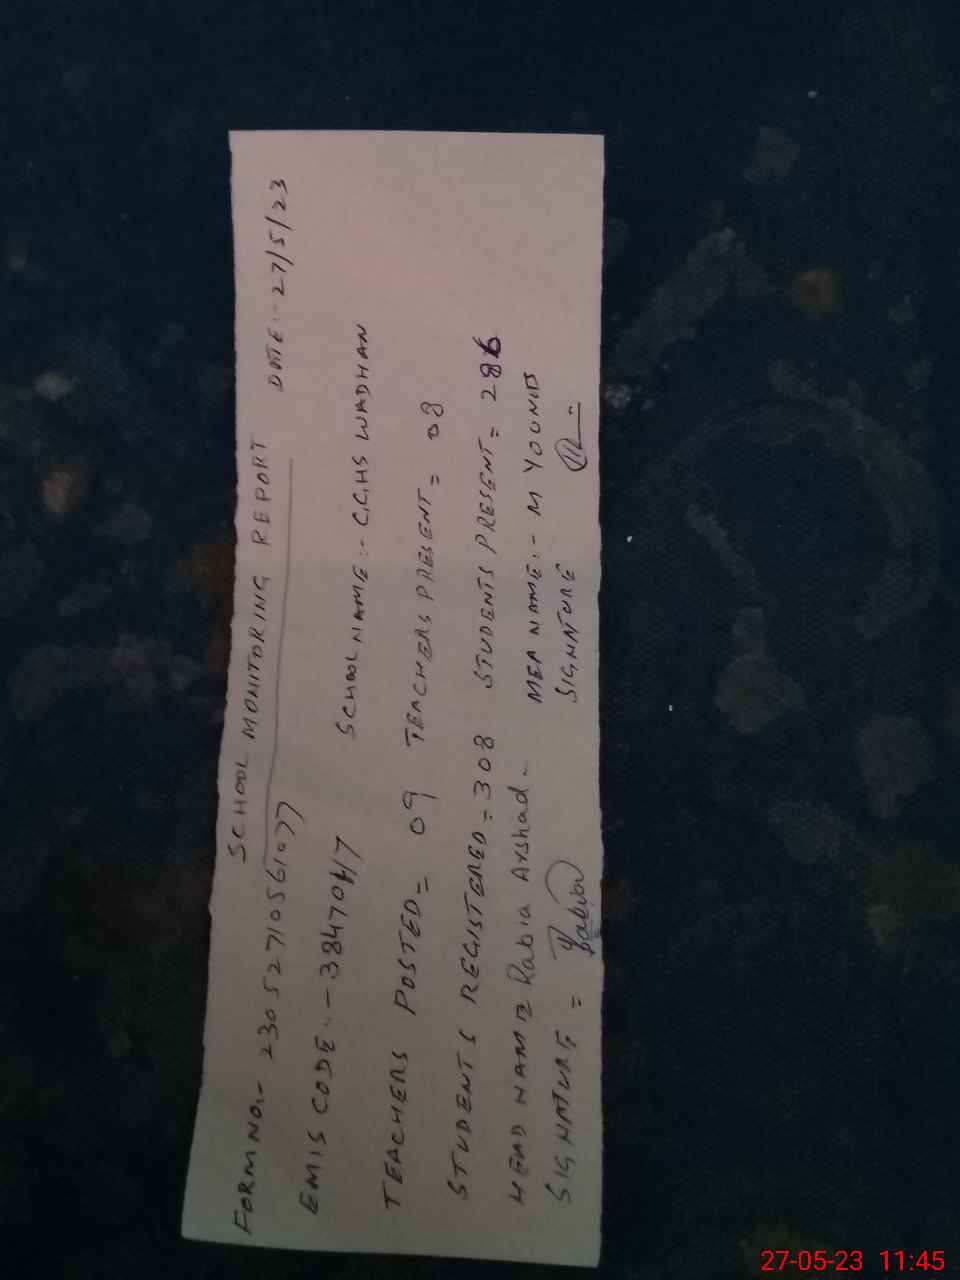 SCHOOL MONITORING REPORT
FORM NO.- 230527105561077 DATE:- 27/5/23
EMIS CODE:- 38470417
SCHOOL NAME:- G.GHS WADHAN
TEACHERS POSTED = 09 TEACHERS PRESENT = 08
STUDENTS REGISTERED = 308 STUDENTS PRESENT = 286
HEAD NAME Rabia Arshad - MEA NAME:- M YOUNIS
SIGNATURE = Rabia SIGNATURE
27-05-23 11:45